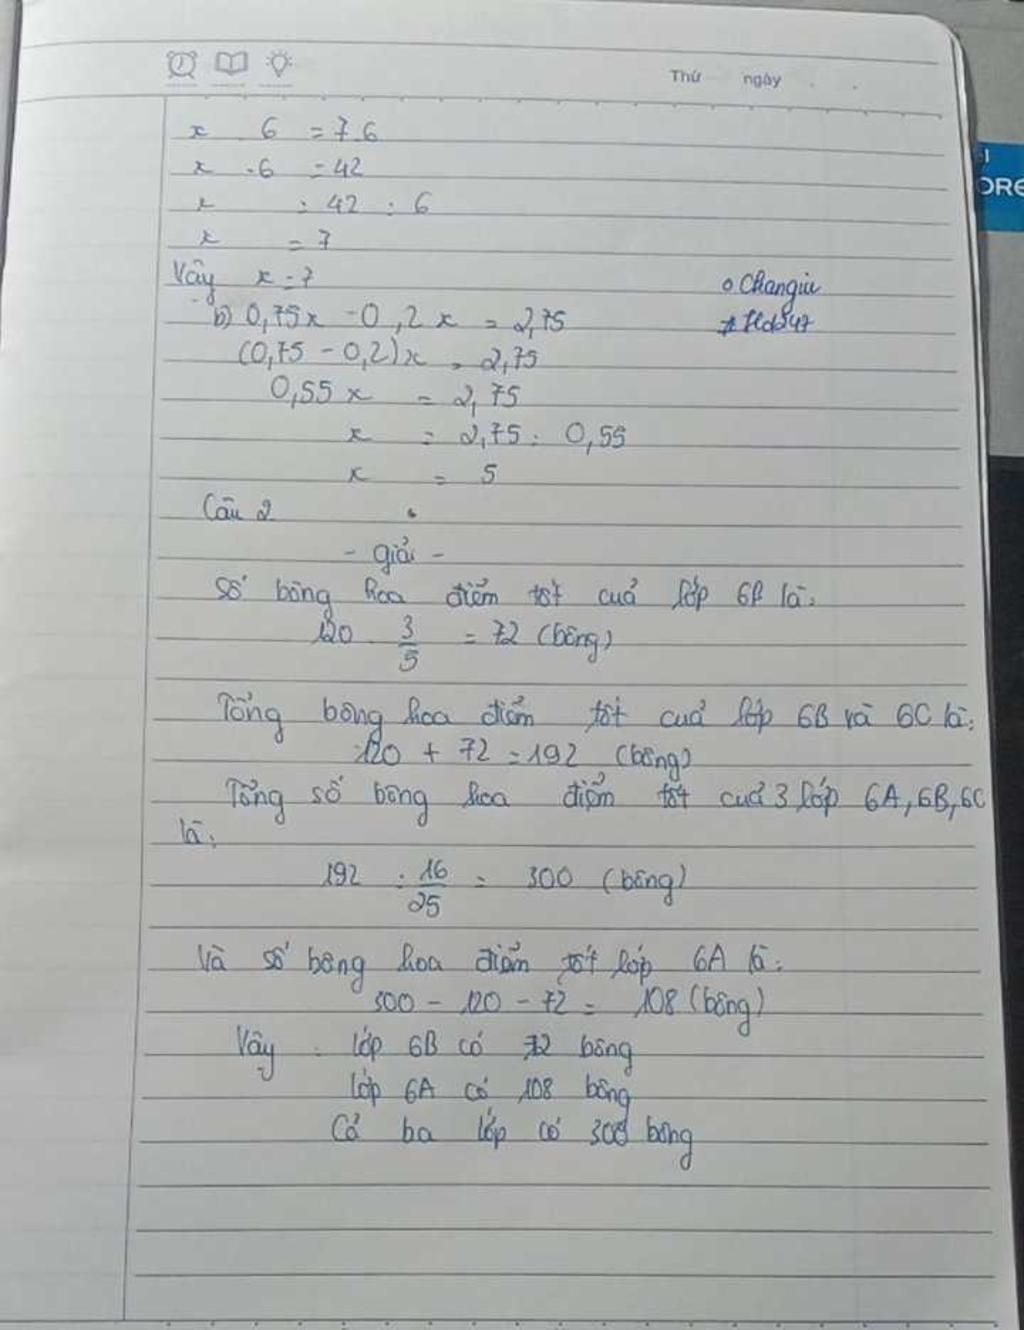 Thứ ngày
x . 6 = 7.6
x . 6 = 42
x = 42 : 6
x = 7
Vậy x = 7
o Changiu
# Hdo547
b) 0,75x - 0,2x = 2,75
(0,75 - 0,2)x = 2,75
0,55x = 2,75
x = 2,75 : 0,55
x = 5
Câu 2
- giải -
Số bông hoa điểm tốt cuả lớp 6B là:
120 . 3/5 = 72 (bông)
Tổng bông hoa điểm tốt cuả lớp 6B và 6C là:
120 + 72 = 192 (bông)
Tổng số bông hoa điểm tốt cuả 3 lớp 6A, 6B, 6C
là:
192 : 16/25 = 300 (bông)
Và số bông hoa điểm tốt lớp 6A là:
300 - 120 - 72 = 108 (bông)
Vậy : lớp 6B có 72 bông
lớp 6A có 108 bông
Cả ba lớp có 300 bông